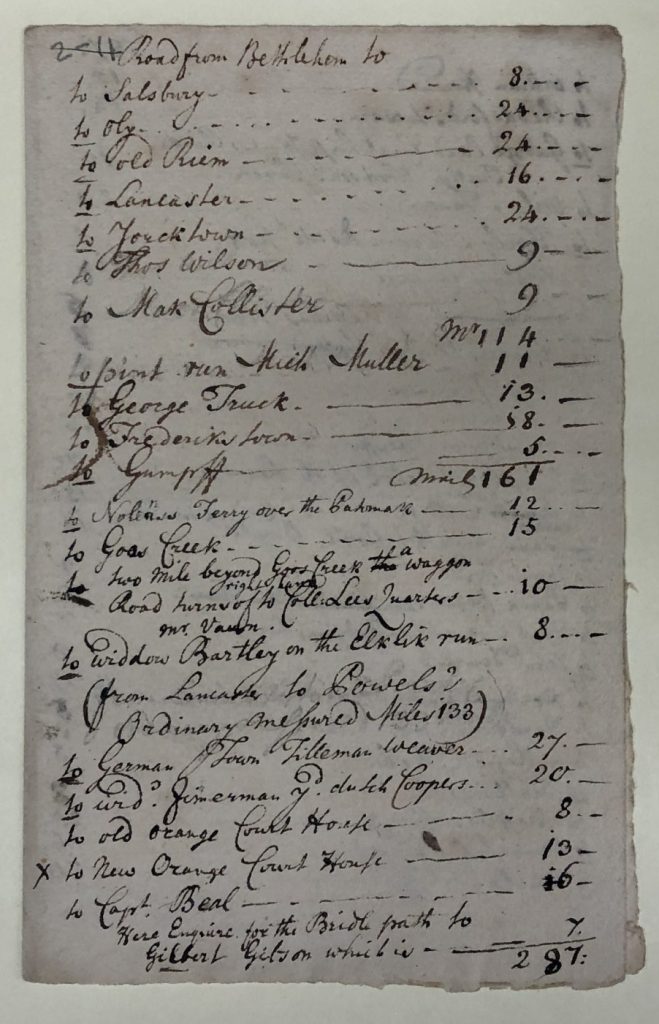 Road from Bethlehem to
to Salsbury - - - - 8. - - -
to Oly - - - - 24. - - -
to old Riem - - - - 24. - - -
to Lancaster - - - - 16. - - -
to Yorcktown - - - - 24. - - -
to Thos Wilson - - 9 - -
to Mak Collister 9 -
Mr 114
to pint run Mich Muller 11 -
to George Truck - - 13. -
to Frederikstown - - 18. - -
to Gumpff - 5. - -
Miles 161
to Nolenss Ferry over the Patmak - 12. - -
to Goos Creek - - - - 15
to two Mile beyond Goos Creek a waggon
right hand
Road turns of to Coll: Lees Quarters - - 10 -
Mr.
to widdow Bartley on the Elklik run - - 8. - - -
(from Lancaster to Powels's
Ordinary messured Miles 133)
to German Town Tilleman Weaver - - - 27. -
to wid: Zimerman yd. dutch Coopers - - 20. -
to old Orange Court House - - 8 - -
x to New Orange Court House - 13 -
to Capt. Beal - - - - 16 -
Here Enquire for the Bridle path to
Gilbert Gibson which is - 7.
287: